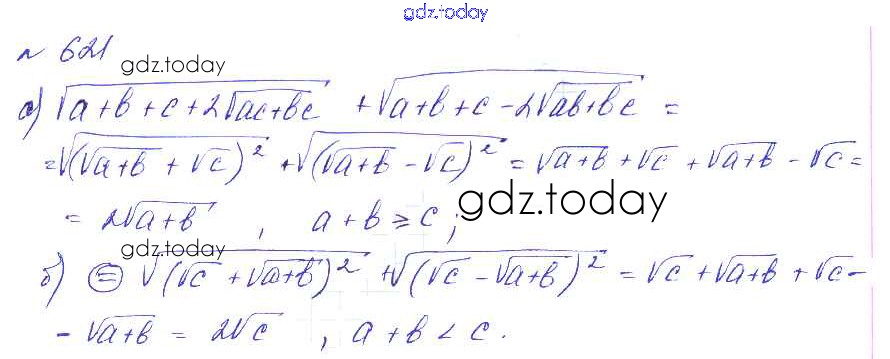 gdz.today
№ 621
gdz.today
а) √(a+b+c+2√(ac+bc)) + √(a+b+c-2√(ab+bc)) =
= √((√(a+b) + √c)²) + √((√(a+b) - √c)²) = √(a+b) + √c + √(a+b) - √c =
gdz.today
= 2√(a+b), a+b ≥ c;
gdz.today
б) ⊜ √((√c + √(a+b))²) + √((√c - √(a+b))²) = √c + √(a+b) + √c -
- √(a+b) = 2√c, a+b < c.